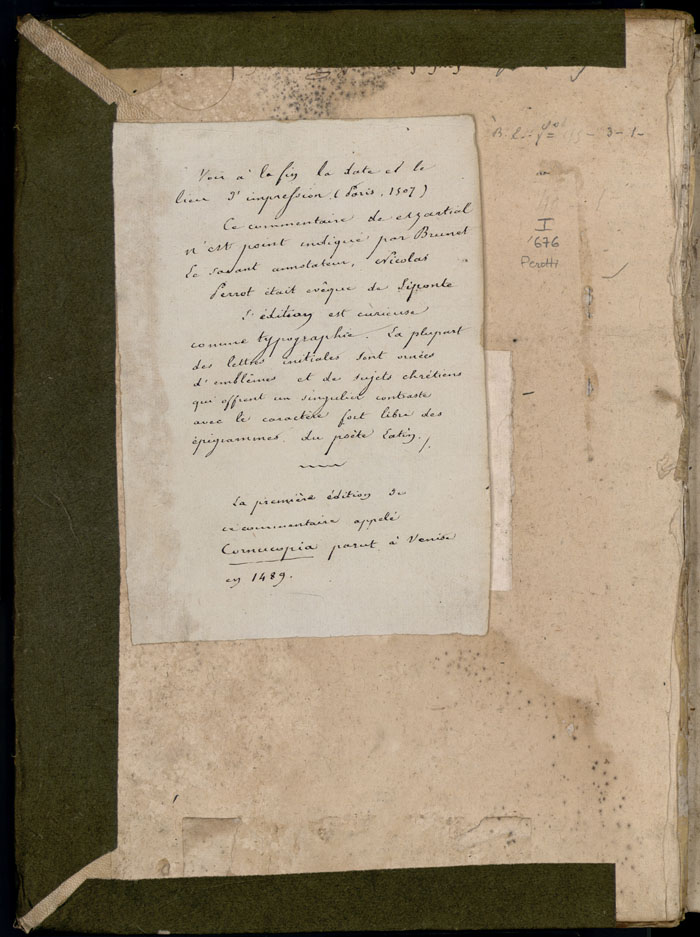 Voir à la fin la date et le
lieu d'impression (Paris, 1507)
Ce commentaire de Martial
n'est point indiqué par Brunet
Le savant annotateur, Nicolas
Perrot était evêque de Siponte
L'édition est curieuse
comme typographie. La plupart
des lettres initiales sont ornées
d'emblêmes et de sujets chrétiens
qui offrent un singulier contraste
avec le caractère fort libre des
épigrammes du poëte latin./.
La première édition de
ce commentaire appelé
Cornucopia parut à Venise
en 1489.
- 3 - 1 -
I
676
Perotti